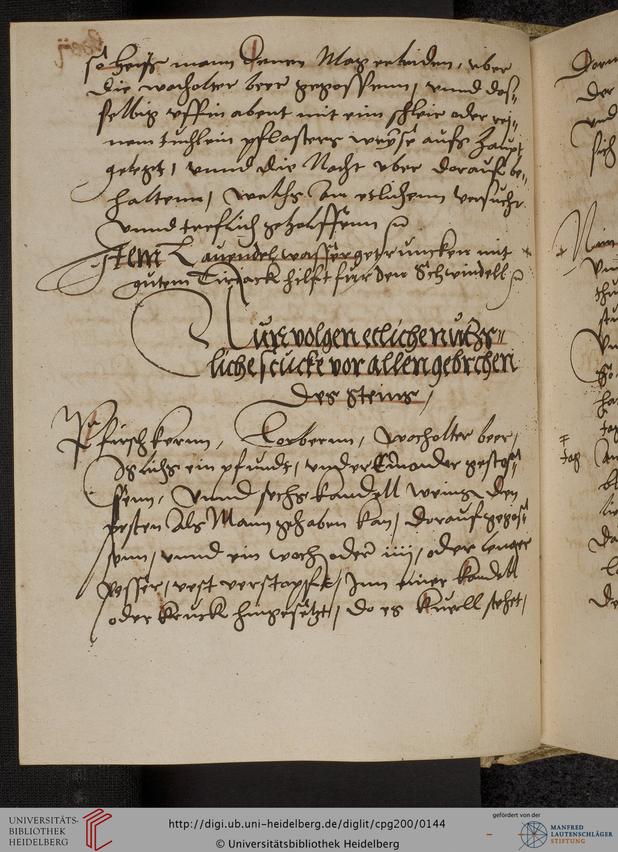 so heiß mann Denen Mag erleiden, vber
die wacholter beer gegossenn, vnnd das„
selbig vffin abent mit eim schleir oder rei„
nem tuchlein pflasters weyse aufs Haupt
gelegt, vnnd die Nacht vber darauf be„
haltenn, welchs an etlichenn versucht
vnnd treflich geholffenn
Item Lauendel wasser getruncken mit
gutem Tiriack hilft fur den Schwindell
Nun volgen etliche nutz„
liche stucke vor allen gebrechen
des Steins,
Pfirsich kernn, Lorbernn, wacholter beer,
Iglichs ein pfundt, vndereinander gestos„
senn, vnnd sechs kandell weins den
besten als Mann gehaben kan, darauf gegos„
senn, vnnd ein woch oder iiij, oder lenger
wesser, vest verstopft, Inn einer kandell
oder kruck hingesetzt, do es kuell stehet,
UNIVERSITÄTS-
BIBLIOTHEK
HEIDELBERG
http://digi.ub.uni-heidelberg.de/diglit/cpg200/0144
© Universitätsbibliothek Heidelberg
gefördert von der
MANFRED
LAUTENSCHLÄGER
STIFTUNG